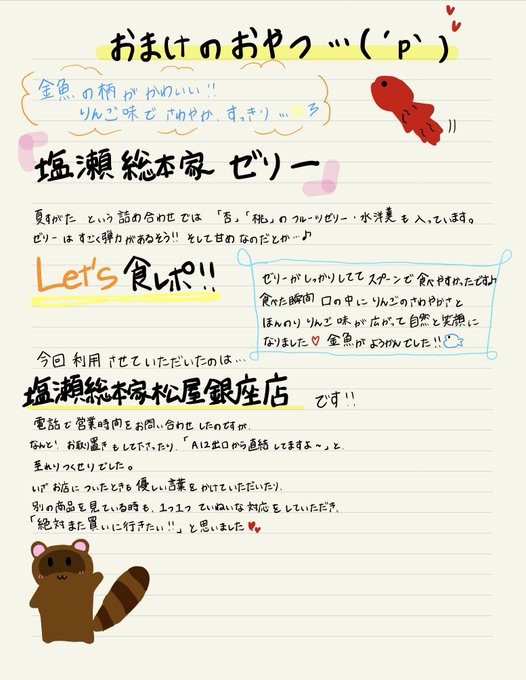 おまけのおやつ…(´p`)
金魚の柄がかわいい!!
りんご味でさわやか、すっきり…
『塩瀬総本家 ゼリー』
夏すがた という詰め合わせでは 「杏」「桃」のフルーツゼリー・水洋羹も入っています。
ゼリーはすごく弾力があるそう!! そして甘めなのだとか…♪
Let's 食レポ!!
ゼリーがしっかりしてて スプーンで食べやすかったです♪
食べた瞬間 口の中にりんごのさわやかさと
ほんのりりんご味が広がって自然と笑顔に
なりました♥ 金魚がようかんでした!!
今回利用させていただいたのは…
塩瀬総本家松屋銀座店 です!!
電話で営業時間をお問い合わせしたのですが、
なんと! お取り置きもして下さったり、「A12出口から直結してますよ～」と、
至れりつくせりでした。
いざお店についたときも優しい言葉をかけていただいたり、
別の商品を見ている時も、1つ1つていねいな対応をしていただき、
「絶対また買いに行きたい!!」と思いました♥♥